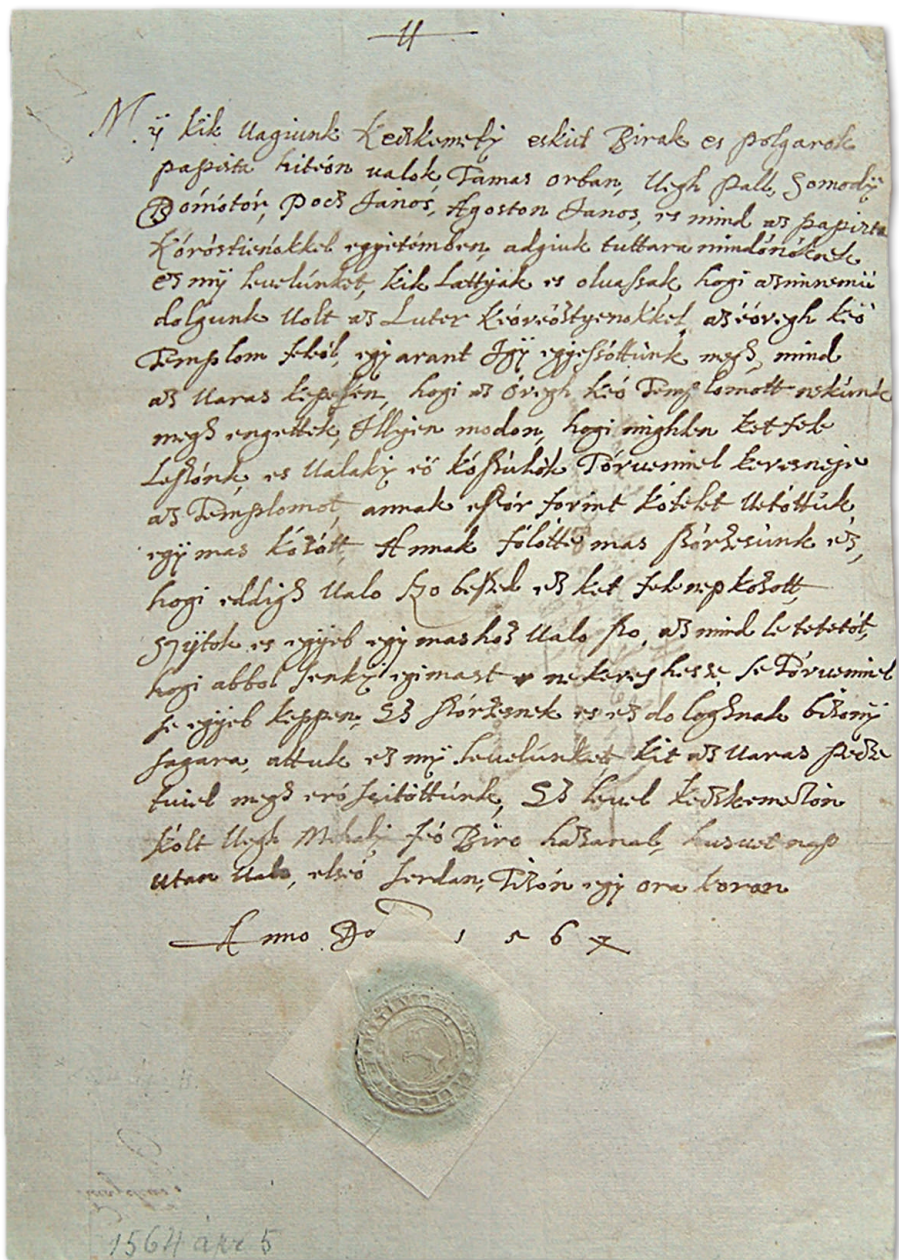 My kik Uagiunk Keczkemety eskut Birak es polgarok
papista hiteón ualok Tamas Orban, Uegh Pall, Somody
Dómótór, Pocs János, Agoston Janos, es mind az Papista
Kóróstienókkel egyetémben, adgiuk tuttara mindónóknek
Ez my leuelúnket, kik Lattyak es oluassak hogi az minemú
dolgunk Uolt az Luter Keóreóstyenokkel, az eóregh keó
Templom feleól, egy arant Igy egyessóttúnk megh mind
az Uaras kepeben, hogi az óregh keó Templomott nekúnk
megh engettek, Illyen modon, hogi mighlen ket fele
Leszónk, es Ualaky eó kószúlók Tórueniel keresneje
az Templomot, annak eszór forint kótelt Uetóttúk
egy mas kózótt, Annak fólótte mas szórzesúnk ez,
hogi eddigh Ualo szo beszed ez ket fele nep kózott,
es egyeb egy mashoz Ualo szo, az mind le tetetót,
hogi abbol senky egimast ne kereshesse se Tórueniel
se egyeb keppen, Ez szórzesnek es ez dologhnak bizony
sagara, attuk ez my leuelúnket kit az Uaras pecze
tiuel megh eró szitóttúnk, Ez leuel keczkemeton
kólt Uegh Mihaly feó Biro hazanal, husuet nap
utan Ualo, elseó serdan, Tizón egy ora koran
Anno Do 1564
1564 ápr 5